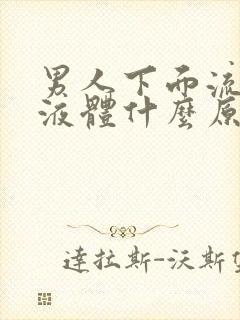 男人下面流
液體什麼原
達拉斯-沃斯堡